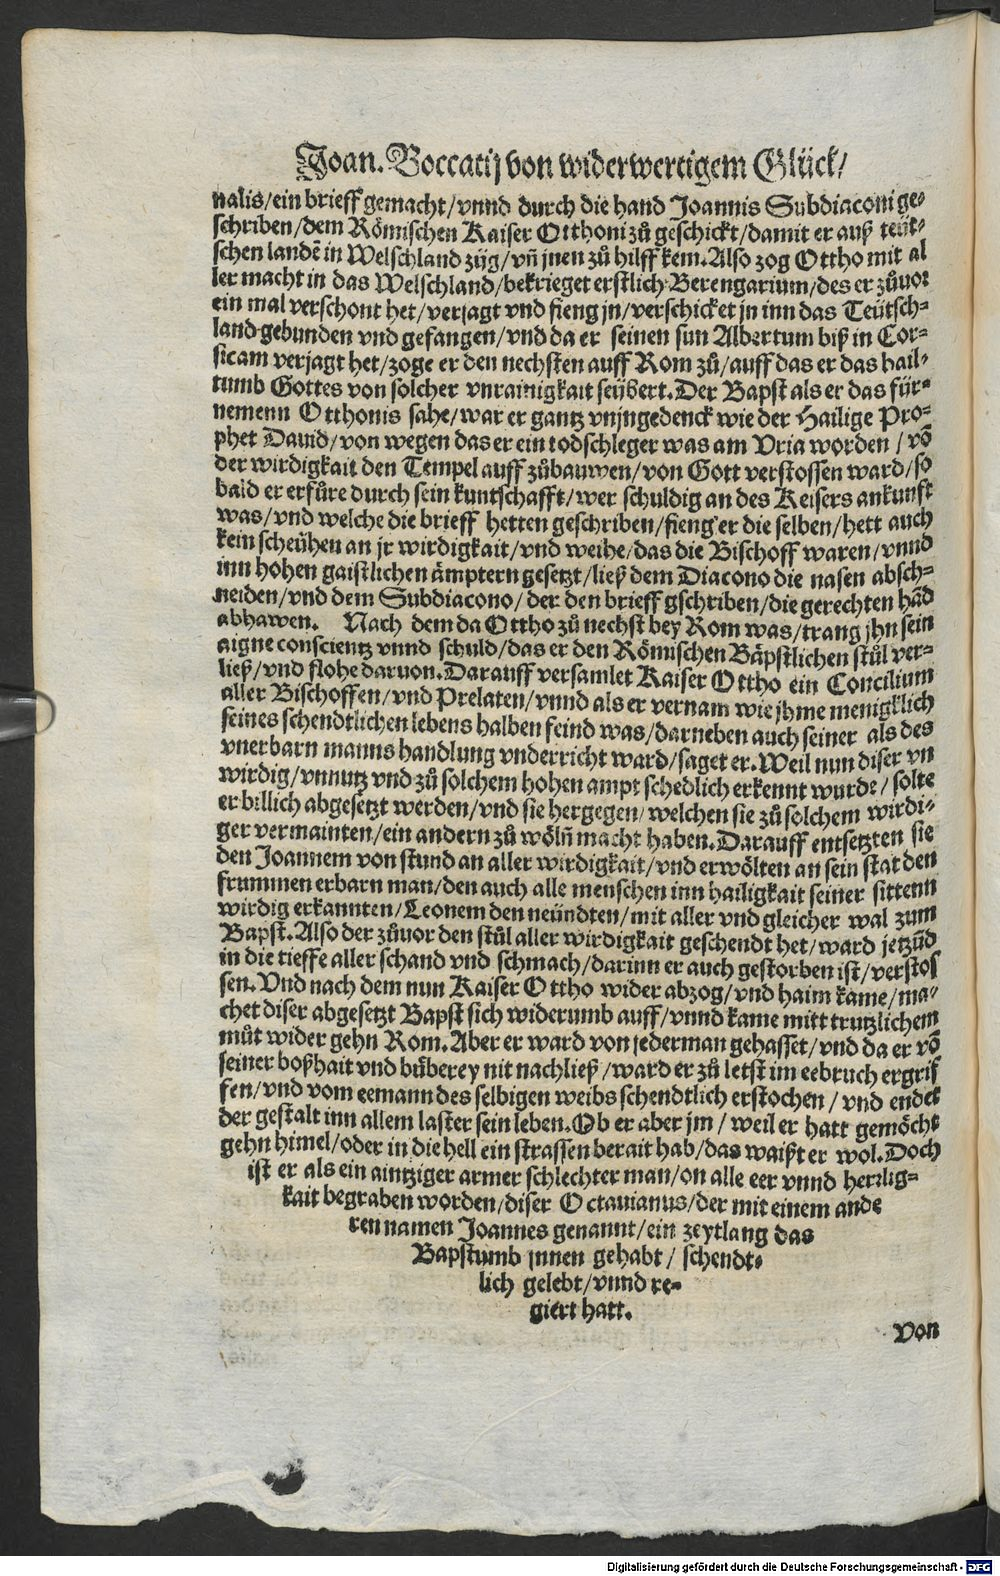 Joan. Boccatij von widerwertigem Glück/
nalis/ein brieff gemacht/vnnd durch die hand Joannis Subdiaconi ge-
schriben/dem Römischen Kaiser Otthoni zů geschickt/damit er auß teüt-
schen landē in Welschland züg/vñ jnen zů hilff kem. Also zog Ottho mit al
ler macht in das Welschland/bekrieget erstlich Berengarium/des er zůuor
ein mal verschont het/verjagt vnd fieng jn/verschicket jn inn das Teütsch-
land gebunden vnd gefangen/vnd da er seinen sun Albertum biß in Cor-
sicam verjagt het/zoge er den nechsten auff Rom zů/auff das er das hail-
tumb Gottes von solcher vnrainigkait seübert. Der Bapst als er das für-
nemenn Otthonis sahe/war er gantz vnjngedenck wie der Hailige Pro-
phet Dauid/von wegen das er ein todschleger was am Vria worden/vō
der wirdigkait den Tempel auff zůbauwen/von Gott verstossen ward/so
bald er erfůre durch sein kuntschafft/wer schuldig an des Keisers ankunft
was/vnd welche die brieff hetten geschriben/fieng er die selben/hett auch
kein scheühen an jr wirdigkait/vnd weihe/das die Bischoff waren/vnnd
inn hohen gaistlichen ämptern gesetzt/ließ dem Diacono die nasen absch-
neiden/vnd dem Subdiacono/der den brieff gschriben/die gerechten hād
abhawen. Nach dem da Ottho zů nechst bey Rom was/trang jhn sein
aigne conscientz vnnd schuld/das er den Römischen Bäpstlichen stůl ver-
ließ/vnd flohe daruon. Darauff versamlet Kaiser Ottho ein Concilium
aller Bischoffen/vnd Prelaten/vnnd als er vernam wie jhme menigklich
seines schendtlichen lebens halben feind was/darneben auch seiner als des
vnerbarn manns handlung vnderricht ward/saget er. Weil nun diser vn
wirdig/vnnutz vnd zů solchem hohen ampt schedlich erkennt wurde/solte
er billich abgesetzt werden/vnd sie hergegen/welchen sie zů solchem wirdi-
ger vermainten/ein andern zů wöln̄ macht haben. Darauff entsetzten sie
den Joannem von stund an aller wirdigkait/vnd erwölten an sein stat den
frummen erbarn man/den auch alle menschen inn hailigkait seiner sittenn
wirdig erkannten/Leonem den neündten/mit aller vnd gleicher wal zum
Bapst. Also der zůuor den stůl aller wirdigkait geschendt het/ward jetzūd
in die tieffe aller schand vnd schmach/darinn er auch gestorben ist/verstos
sen. Vnd nach dem nun Kaiser Ottho wider abzog/vnd haim kame/ma-
chet diser abgesetzt Bapst sich widerumb auff/vnnd kame mitt trutzlichem
můt wider gehn Rom. Aber er ward von jederman gehasset/vnd da er vō
seiner boßhait vnd bůberey nit nachließ/ward er zů letst im eebruch ergrif
fen/vnd vom eemann des selbigen weibs schendtlich erstochen/vnd endet
der gestalt inn allem laster sein leben. Ob er aber jm/weil er hatt gemöcht
gehn himel/oder in die hell ein strassen berait hab/das waißt er wol. Doch
ist er als ein aintziger armer schlechter man/on alle eer vnnd herrlig-
kait begraben worden/diser Octauianus/der mit einem ande
ren namen Joannes genannt/ein zeytlang das
Bapstumb jnnen gehabt/schendt-
lich gelebt/vnnd re-
giert hatt.
Von
Digitalisierung gefördert durch die Deutsche Forschungsgemeinschaft - DFG